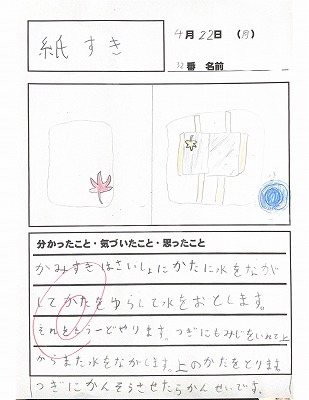 紙すき
4月22日 (月)
32番 名前
分かったこと・気づいたこと・思ったこと
かみすきはさいしょにかたに水をなが
してかたをゆらして水をおとします。
それをもう一どやります。つぎにもみじをいれて上
からまた水をながします。上のかたをとります。
つぎにかんそうさせたらかんせいです。